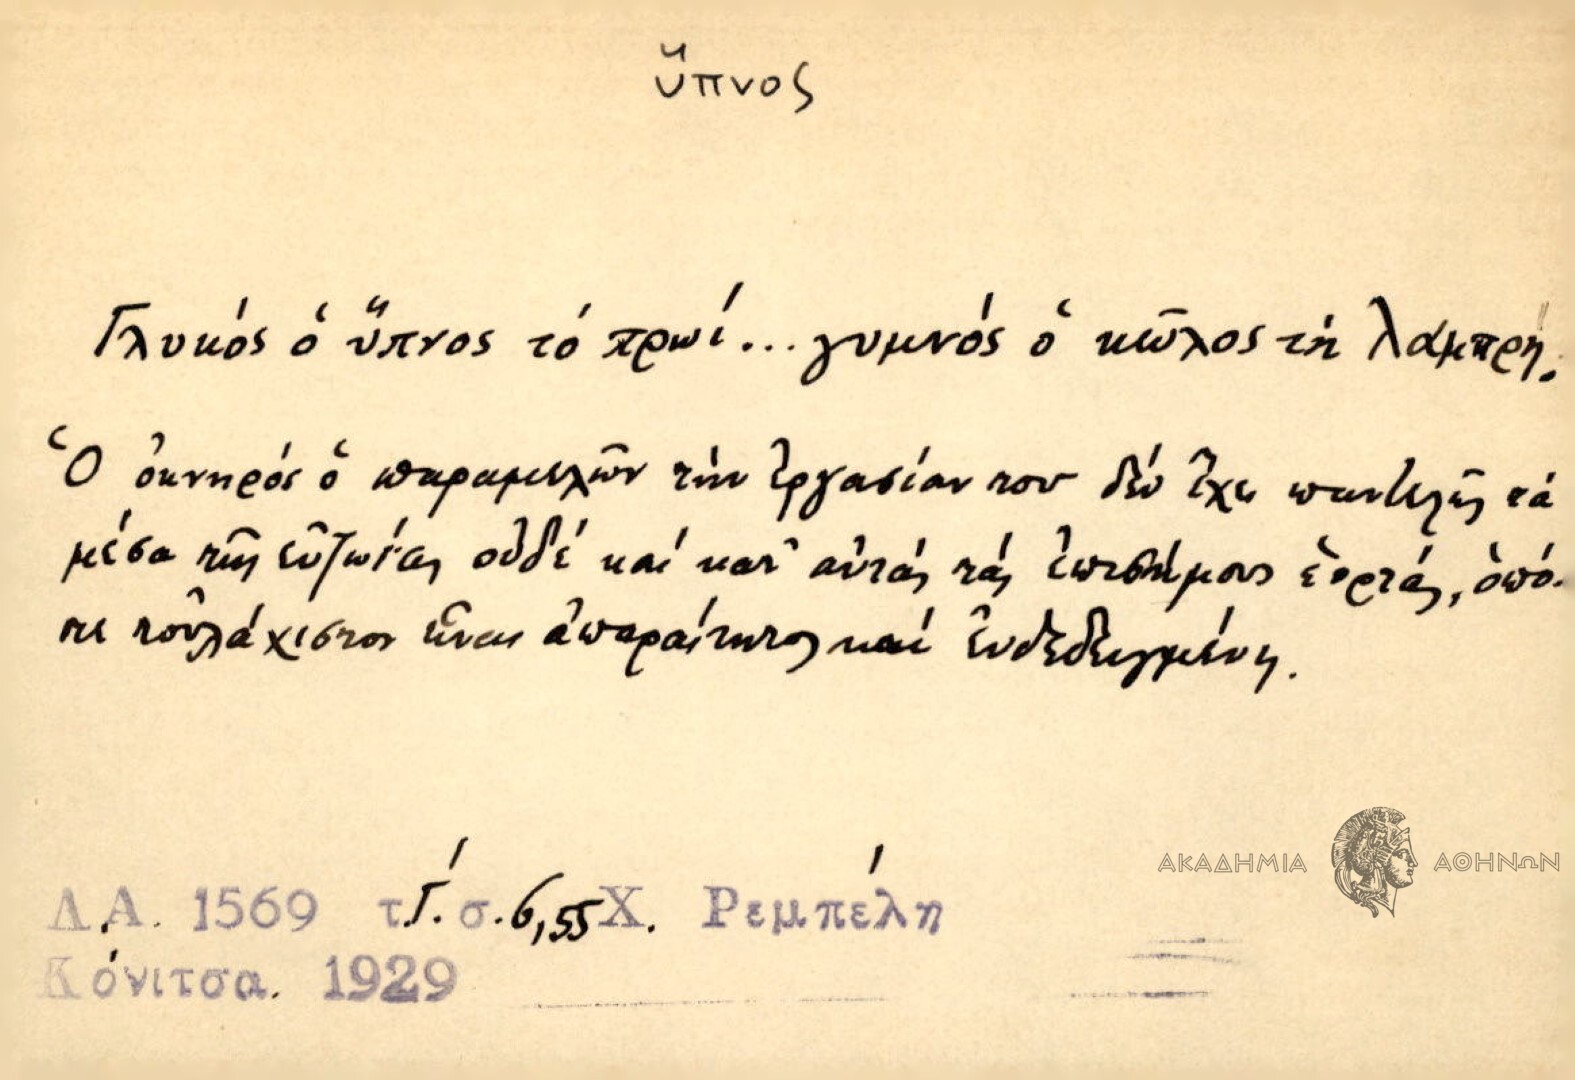 ὕπνος
Γλυκός ὁ ὕπνος τό πρωί... γυμνός ὁ κῶλος τή Λαμπρή.
Ὁ ὀκνηρός ὁ παραμελῶν τήν ἐργασίαν του δέν ἔχει παντελῶς τά
μέσα τῆς εὐζωΐας οὐδέ καί κατ' αὐτάς τάς ἐπισήμους ἑορτάς, ὁπό-
τε τοὐλάχιστον εἶναι ἀπαραίτητος καί ἐνδεδειγμένη.
Λ.Α. 1569 τ.Γ΄. σ. 6,55 Χ. Ρεμπέλη
Κόνιτσα. 1929
ΑΚΑΔΗΜΙΑ ΑΘΗΝΩΝ